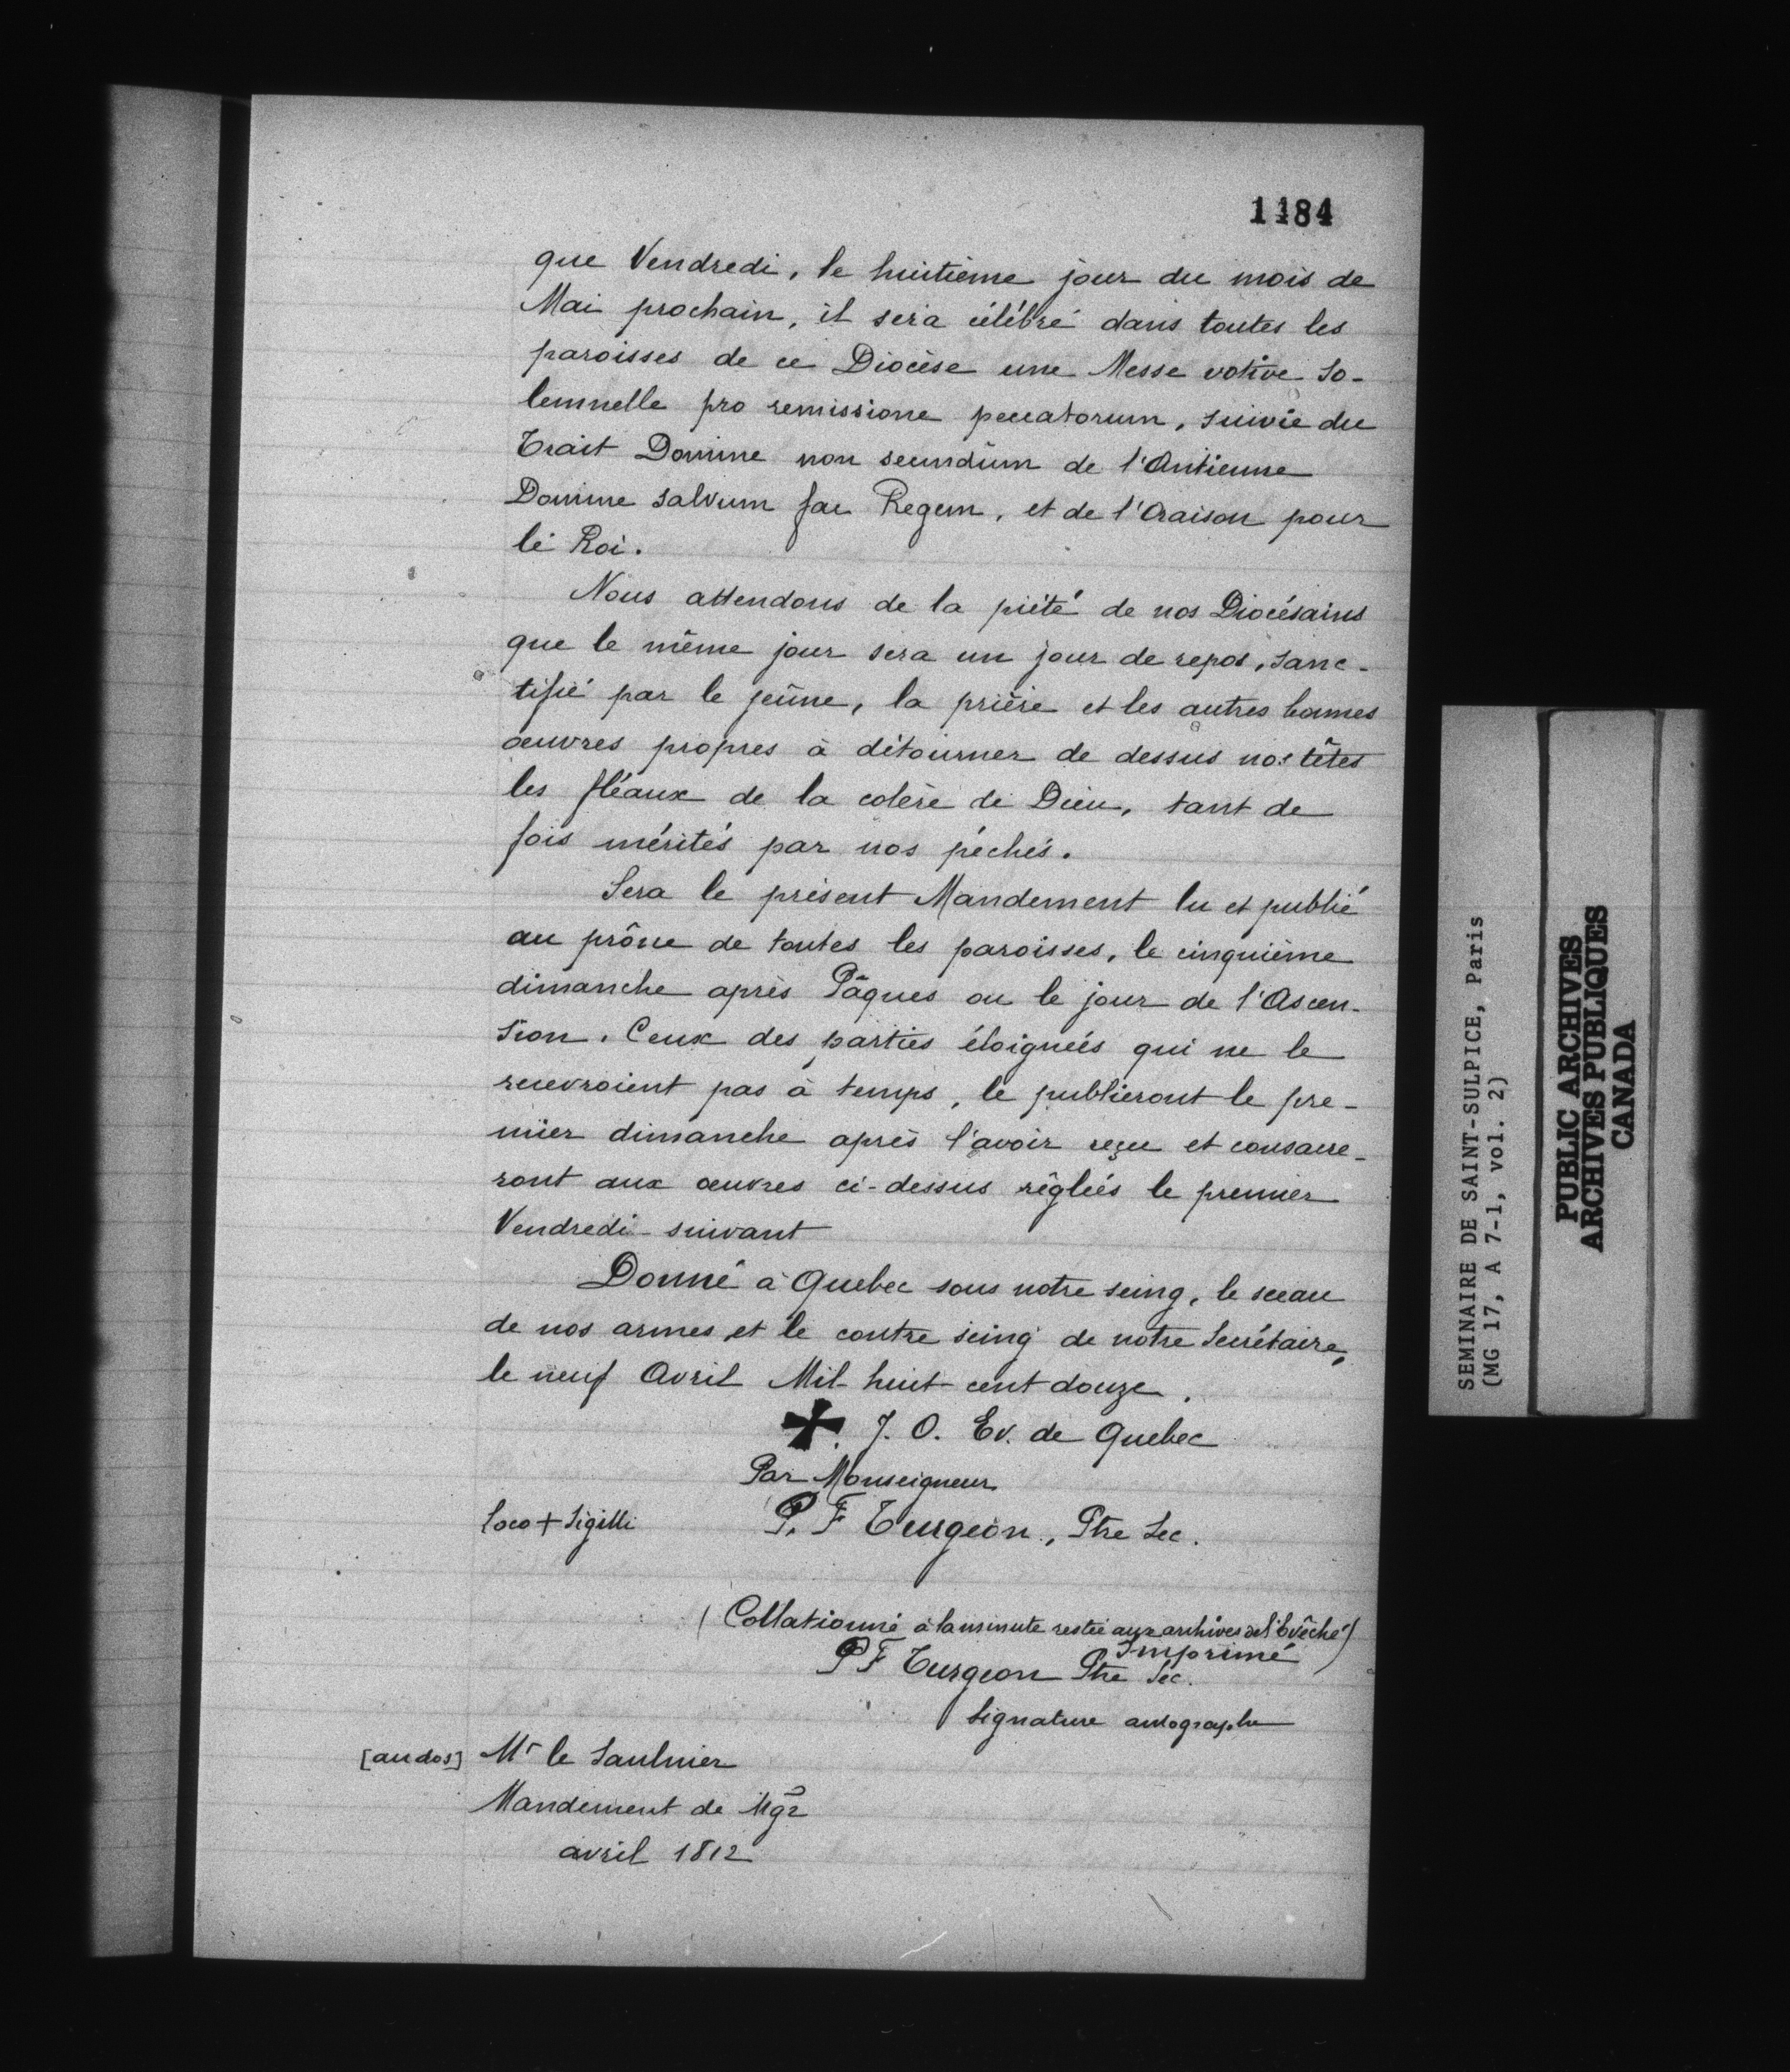 1184
que Vendredi, le huitième jour du mois de
Mai prochain, il sera célébré dans toutes les
paroisses de ce Diocèse une Messe votive so-
lemnelle pro remissione peccatorum, suivie du
Trait Domine non secundum de l'Antienne
Domine salvum fac Regem, et de l'Oraison pour
le Roi.
Nous attendons de la piété de nos Diocésains
que le même jour sera un jour de repos, sanc-
tifié par le jeûne, la prière et les autres bonnes
œuvres propres à détourner de dessus nos têtes
les fléaux de la colère de Dieu, tant de
fois mérités par nos péchés.
Sera le présent Mandement lu et publié
au prône de toutes les paroisses, le cinquième
dimanche après Pâques ou le jour de l'Ascen-
sion. Ceux des parties éloignées qui ne le
recevroient pas à temps, le publieront le pre-
mier dimanche après l'avoir reçu et consacre-
ront aux œuvres ci-dessus réglées le premier
Vendredi suivant
Donné à Quebec sous notre seing, le sceau
de nos armes et le contre seing de notre Secrétaire,
le neuf Avril Mil huit cent douze.
✠. J. O. Ev. de Quebec
Par Monseigneur
Loco + Sigilli P. F Turgeon, Ptre Sec.
(Collationné à la minute restée aux archives de l'Evêché)
Imprimé)
P F Turgeon Ptre Séc.
Signature autographe
[au dos] Mr le Saulnier
Mandement de Mgr
avril 1812
SEMINAIRE DE SAINT-SULPICE, Paris
(MG 17, A 7-1, vol. 2)
PUBLIC ARCHIVES
ARCHIVES PUBLIQUES
CANADA